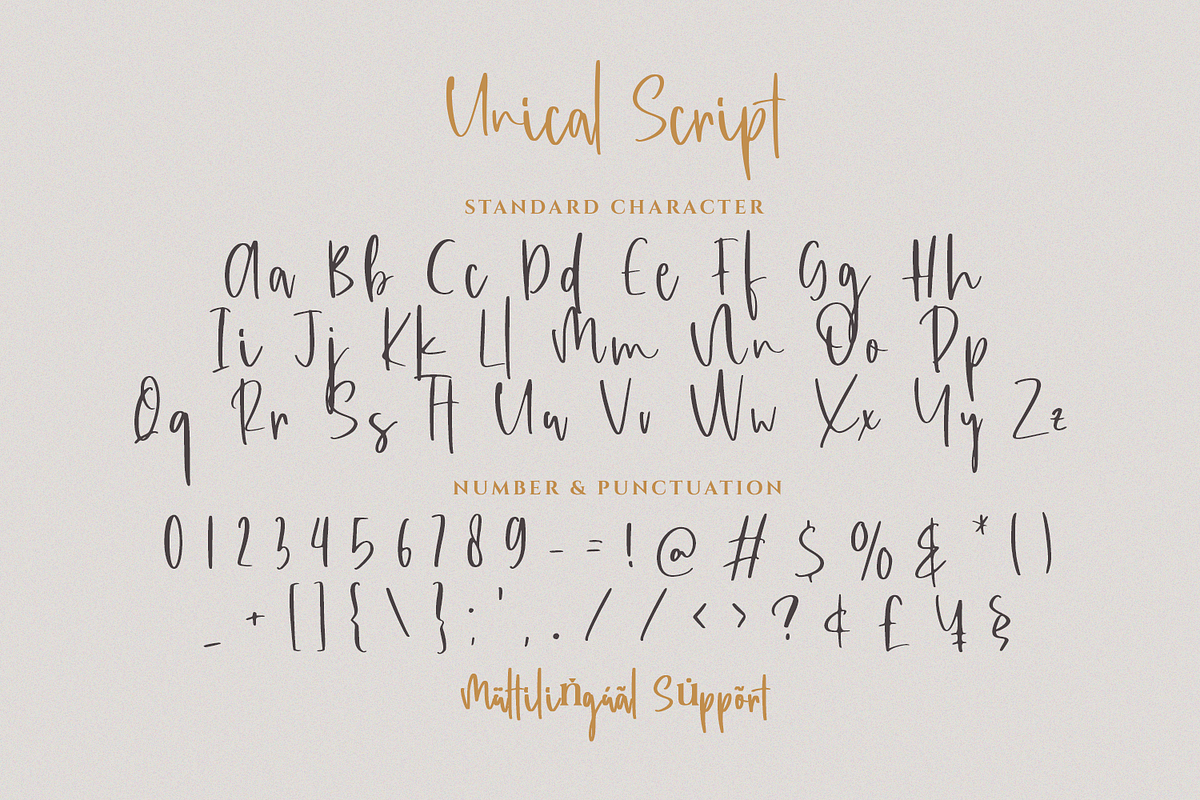 Unical Script
STANDARD CHARACTER
Aa Bb Cc Dd Ee Ff Gg Hh
Ii Jj Kk Ll Mm Nn Oo Pp
Qq Rr Ss Tt Uu Vv Ww Xx Yy Zz
NUMBER & PUNCTUATION
0 1 2 3 4 5 6 7 8 9 - = ! @ # $ % & * ( )
_ + [ ] { \ } ; ' , . / / < > ? ¢ £ ¥ §
Mūltiliṅgúãl Su̇ppõrt